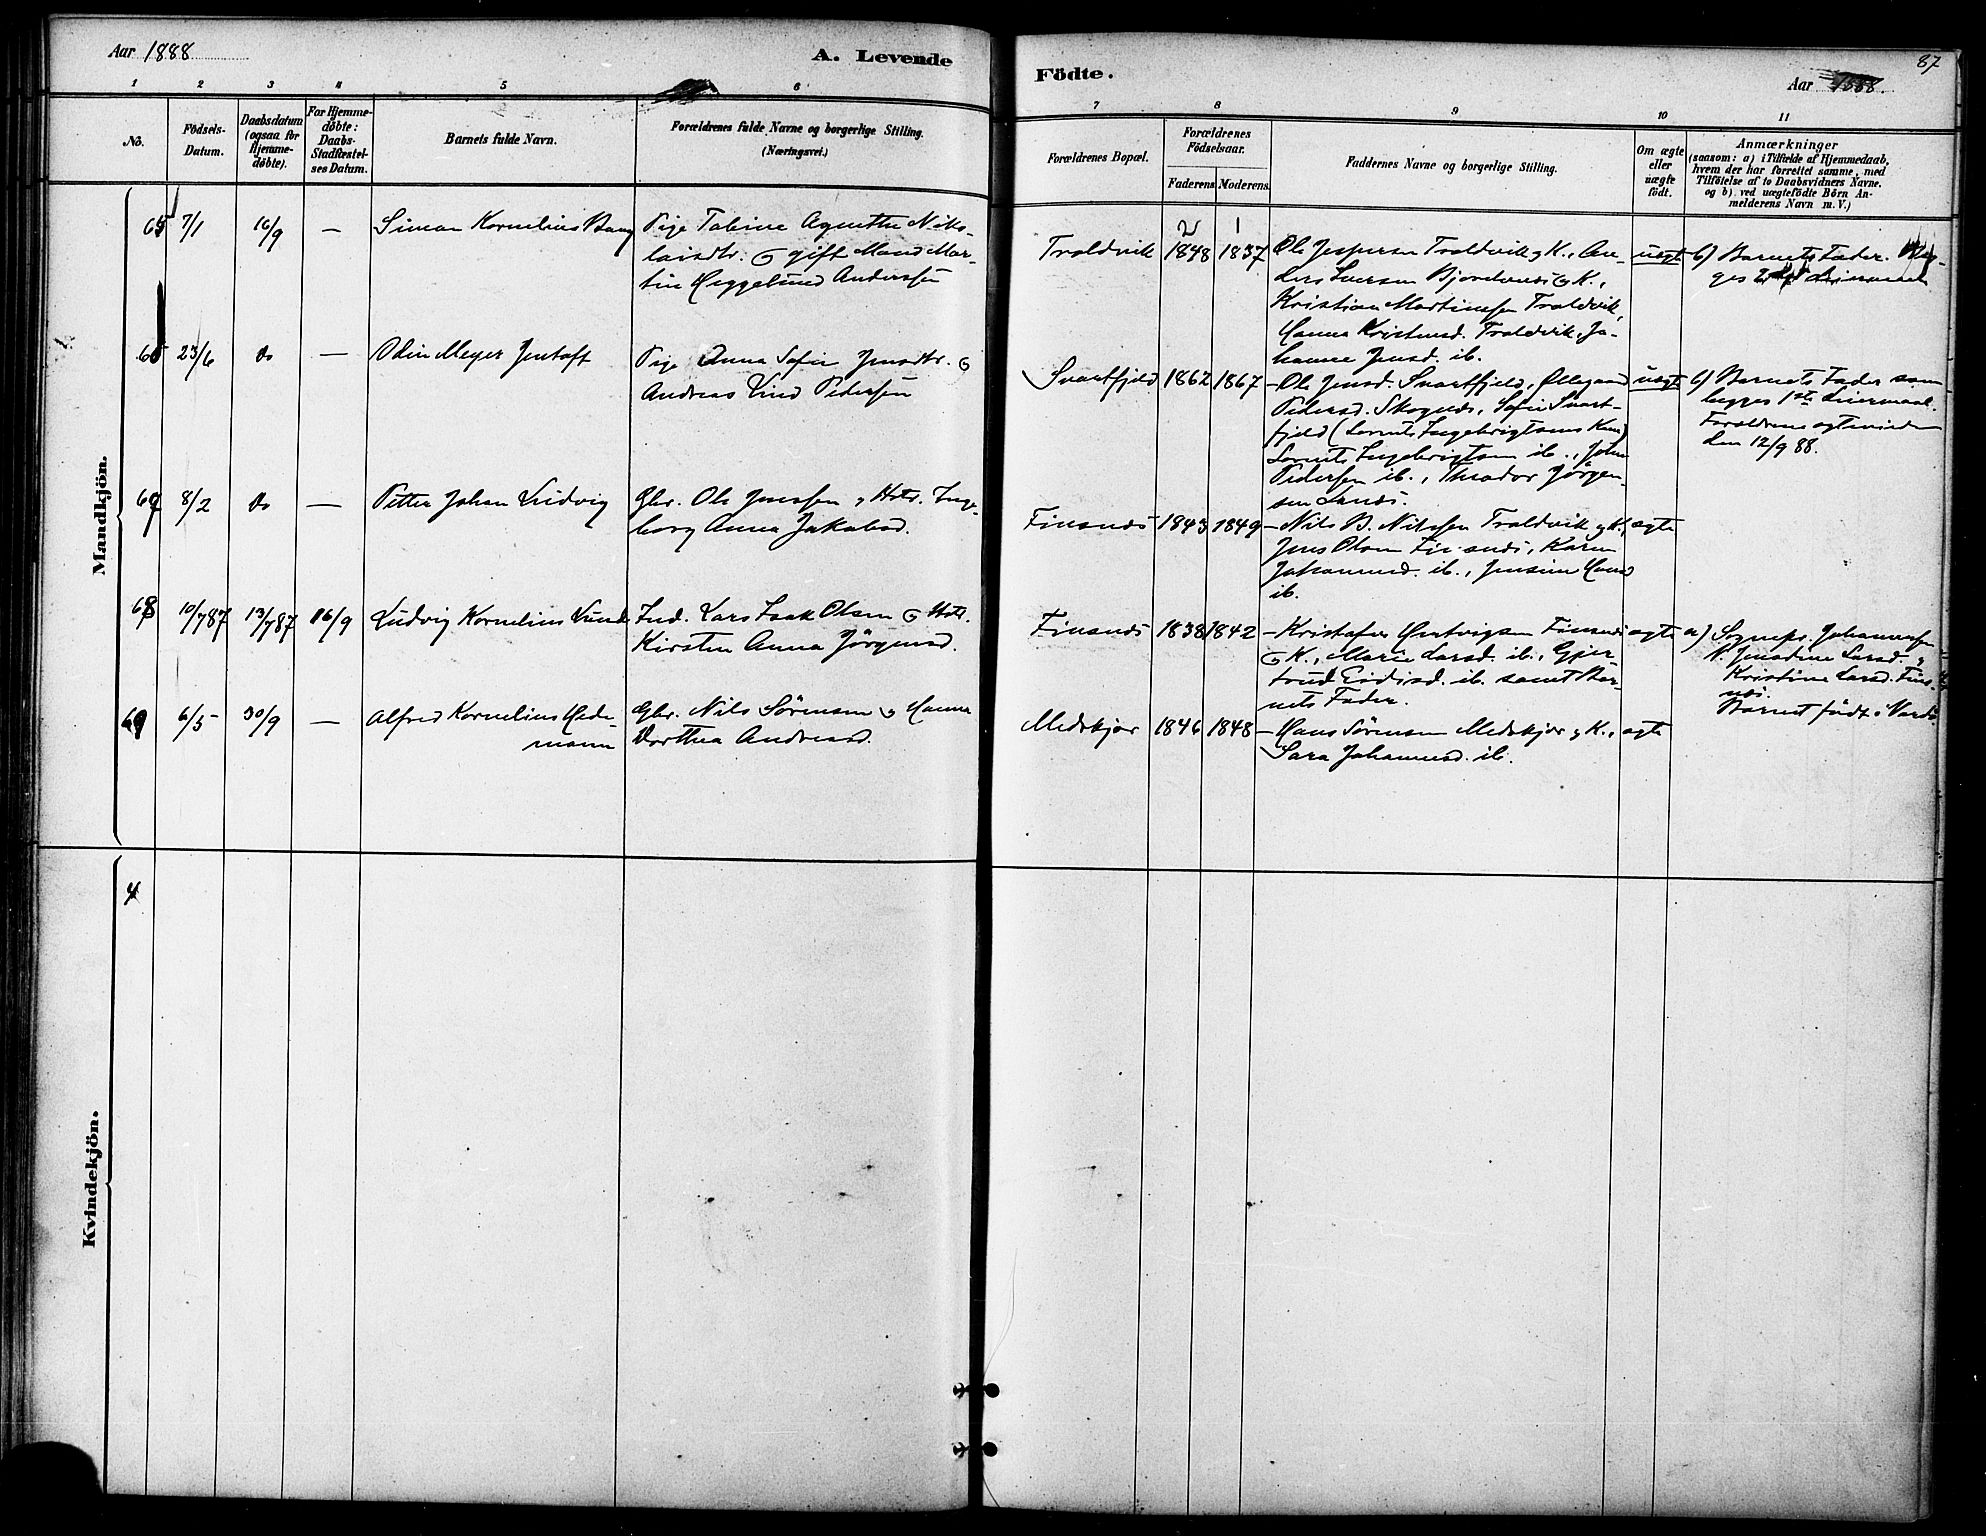 Aar 1888
A. Levende
Födte.
Aar 1888.
87
1 2 3 4 5 6
7 8 9 10 11
No.
Fødsels-
Datum.
Daabsdatum
(ogsaa for
Hjemme-
døbte).
For Hjemme-
døbte:
Daabs-
Stadfæstel-
ses Datum.
Barnets fulde Navn.
Forældrenes fulde Navne og borgerlige Stilling.
(Næringsvei.)
Forældrenes Bopæl.
Forældrenes
Fødselsaar.
Faderens Moderens.
Faddernes Navne og borgerlige Stilling.
Om ægte
eller
uægte
født.
Anmærkninger
(saasom: a) i Tilfælde af Hjemmedaab,
hvem der har forrettet samme, med
Tilføielse af to Daabsvidners Navne,
og b) ved uægtefødte Børn An-
melderens Navn m. V.)
Mandkjön.
65 7/1 16/9 — Simon Kornelius Bang
Pige Tabine Agnethe Niko-
laisdtr. og gift Mand Mar-
tin Heggelund Anderssen
Troldvik
2 1
1848 1837
Ole Jespersen Troldvik og K., An-
ders Iversen Bjordnæs og K.,
Kristian Martinssen Troldvik,
Hanna Kristensd. Troldvik, Jo-
hanna Jensd. ib.
uægte
b) Barnets Fader.
66 23/6 do — Odin Meyer Jentoft
Pige Anna Sofie Jensdtr. og
Andreas Lind Pedersen
Svartfjeld 1862 1867
— Ole Jensd. Svartfjeld, Ollegaard
Pedersd. Skognæs, Sofie Svart-
fjeld (Lornts Ingebrigtsens Kone)
Lornts Ingebrigtsen ib., Johan
Pedersen ib., Theodor Jørgen-
sen Sandø.
uægte
b) Barnets Fader som
begges 1ste Leiermaal.
Forældrene ægteviede
den 12/9 88.
67 8/2 do — Petter Johan Ludvig
Gbr. Ole Jenssen og Hstr. Inge-
borg Anna Jakobsd.
Finsnæs 1843 1849
— Nils B. Nilssen Troldvik og K.,
Jens Olsen Finsnæs, Karen
Johannesd. ib., Jensine Hansd.
ib.
ægte
68 10/7 87 13/7 87 16/9 Ludvig Kornelius Lund
Ind. Lars Isak Olsen og Hstr.
Kirsten Anna Jörgensd.
Finsnæs 1838 1842
— Kristofer Hartvigsen Finsnæs
og K., Marie Larsd. ib., Gjer-
trud Eidisd. ib. samt Bar-
nets Fader.
ægte
a) Sognepr. Johannessen
V. Jensine Larsd. og
Kristine Larsd. Fins-
næs.
Barnet født i Vardø
69 6/5 30/9 — Alfred Kornelius Hede-
mann
Gbr. Nils Sörensen og Hanna
Dorthea Andreasd.
Medskjær 1846 1848
— Hans Sörensen Medskjær og K.,
Sara Johannesd. ib.
ægte
Kvindekjön.
4